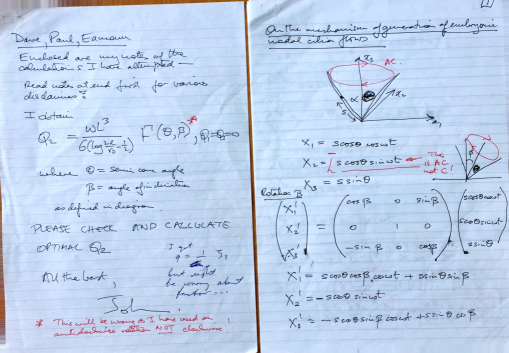 Dave, Paul, Eamonn
Enclosed are my notes of the
calculations I have attempted —
Read notes at end first for various
disclaimers!
I obtain
Q₂ = ωL³ / 6(log 2L/r₀ - 1/2) F(θ,β)*, Q₁=Q₃=0
where θ = semi cone angle
β = angle of inclination
as defined in diagram
PLEASE CHECK AND CALCULATE
OPTIMAL Q₂
I get
but might
be wrong about
factor...
All the best,
* This will be wrong as I have used an
anticlockwise rather NOT clockwise!
[1]
On the mechanism of generation of embryonic
nodal cilia flows
x₃
AC
α
x₂
x₁
X₁ = s cosθ cosωt
X₂ = - s cosθ sinωt ← This
is AC
not C!
X₃ = s sinθ
Rotation β
(X₁' X₂' X₃') = (cosβ 0 sinβ
0 1 0
-sinβ 0 cosβ) (s cosθ cosωt
s sinθ)
X₁' = s cosθ cosβ cosωt + s sinθ sinβ
X₂' = - s cosθ sinωt
X₃' = - s cosθ sinβ cosωt + s sinθ cosβ